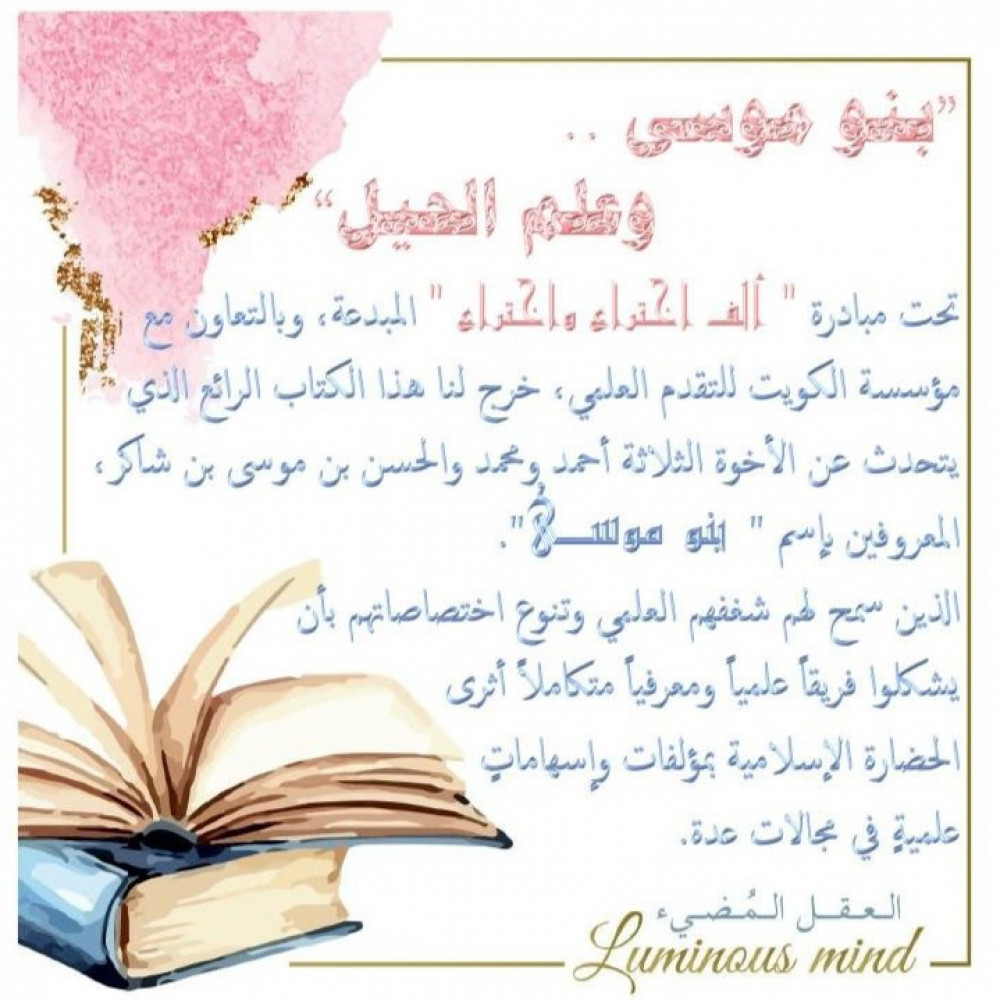 ”بنو موسى ..
وعلم الحيل“
تحت مبادرة " ألف اختراع واختراع " المبدعة، وبالتعاون مع
مؤسسة الكويت للتقدم العلمي، خرج لنا هذا الكتاب الرائع الذي
يتحدث عن الأخوة الثلاثة أحمد ومحمد والحسن بن موسى بن شاكر،
المعروفين بإسم " بنو موسى".
الذين سمح لهم شغفهم العلمي وتنوع اختصاصاتهم بأن
يشكلوا فريقاً علمياً ومعرفياً متكاملاً أثرى
الحضارة الإسلامية بمؤلفات وإسهاماتٍ
علميةٍ في مجالات عدة.
العقل المُضيء
Luminous mind